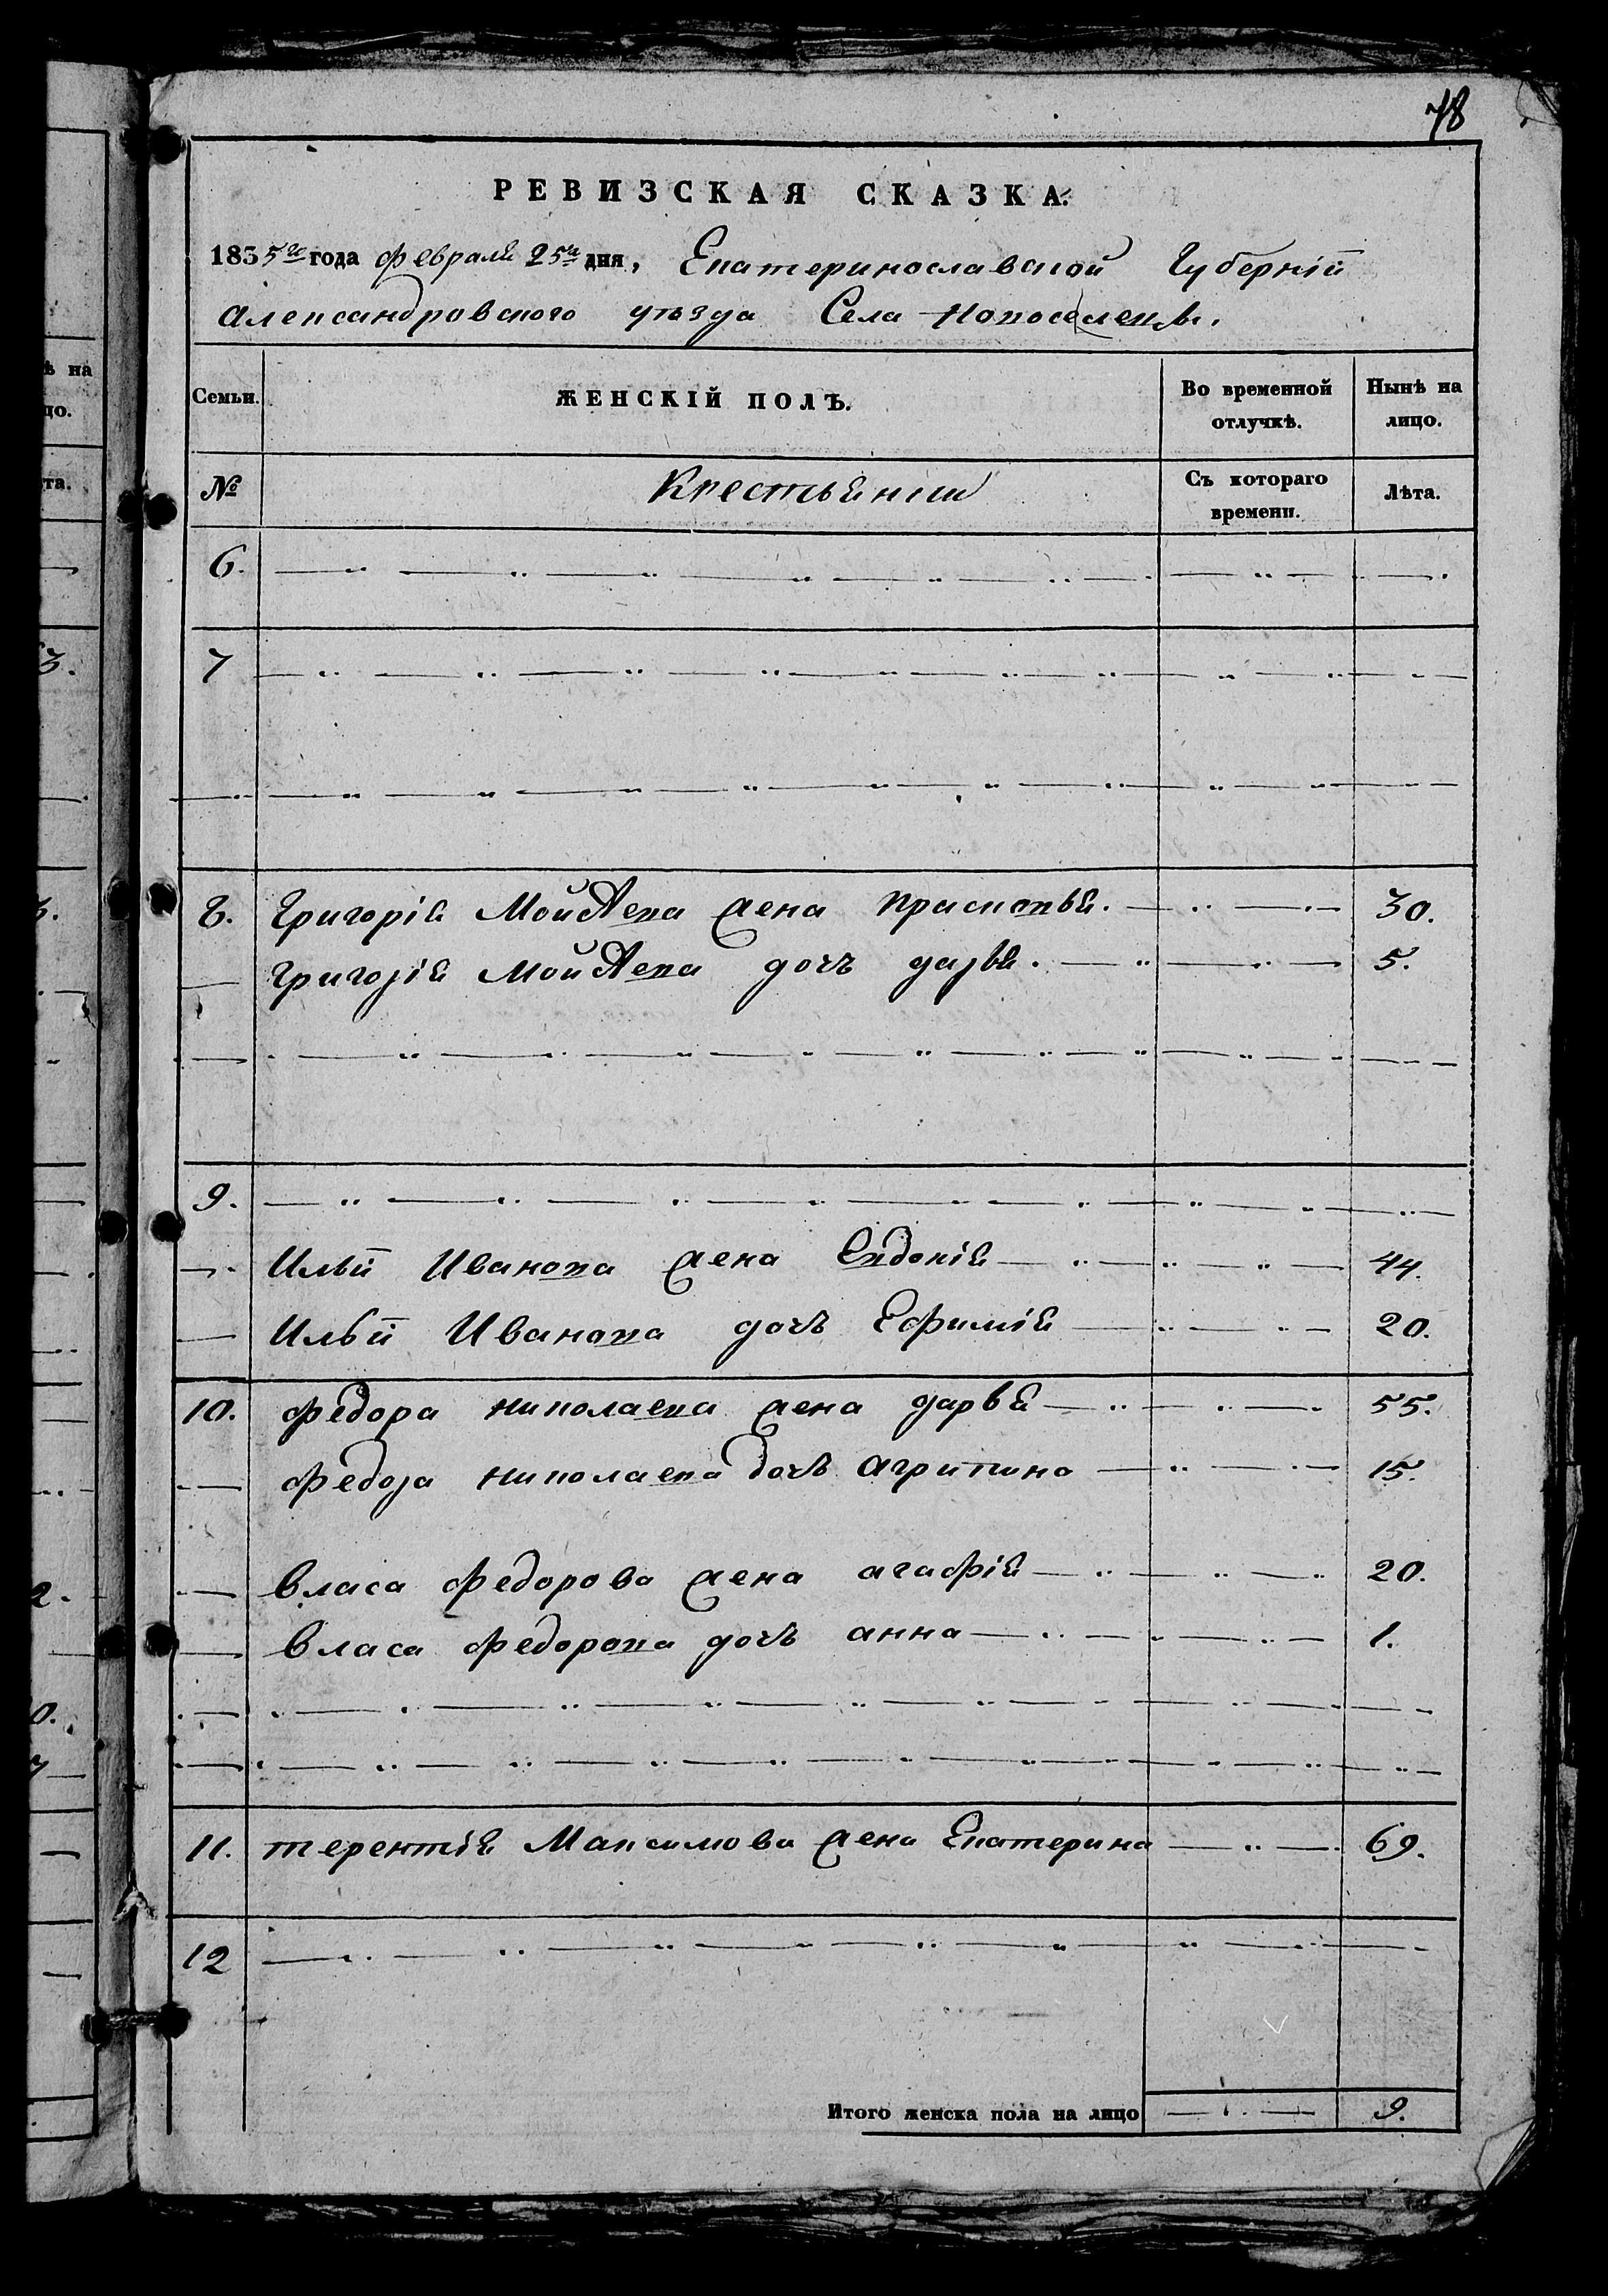 78
РЕВИЗСКАЯ СКАЗКА.
1835го года февраля 25го дня, Екатеринославской Губерніи
Александровского уѣзда Села Новоселки.
Семьи. ЖЕНСКІЙ ПОЛЪ. Во временной отлучкѣ. Нынѣ на лицо.
№ Крестьяния Съ котораго времени. Лѣта.
6.
7
8. Григорія Мойсеева жена Прасковья. 30.
Григорія Мойсеева дочъ дарья. 5.
9.
Ильи Иванова жена Евдокія 44.
Ильи Иванова дочъ Ефимія 20.
10. федора николаева жена дарья 55.
федора николаева дочъ агрипина 15.
власа федорова жена агафія 20.
власа федорова дочъ анна 1.
11. терентія Максимова жена Екатерина 69.
12
Итого женска пола на лицо 9.
ѣ на
цо.
та.
3.